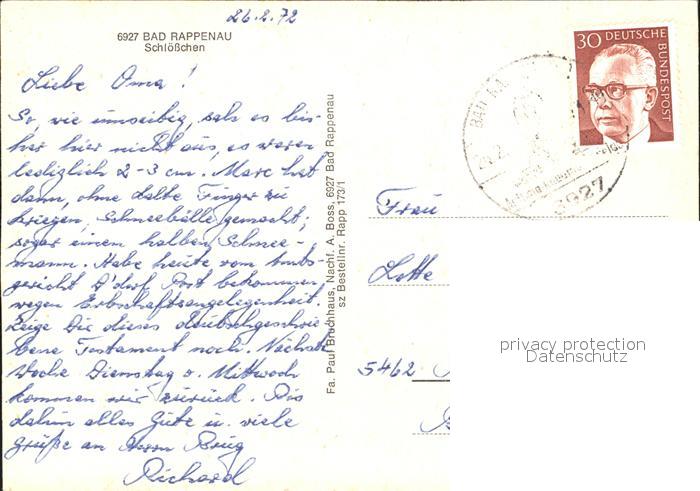 26.2.72
6927 BAD RAPPENAU
Schlößchen
Liebe Oma!
So, wie umseitig, sah es bis-
her hier nicht aus, es waren
lediglich 2-3 cm. Marc hat
dann, ohne kalte Finger zu
kriegen Schneebälle gemacht;
sogar einen halben Schnee-
mann. Habe heute vom Amts-
gericht D'dorf Post bekommen,
wegen Erbschaftsangelegenheit.
Zeige Dir dieses
bene Testament noch. Nächste
Woche Dienstag o. Mittwoch
kommen wir zurück. Bis
dahin alles Gute u. viele
Grüße an Herrn
Richard
Fa. Paul Bruchhaus, Nachf. A. Boss, 6927 Bad Rappenau
sz Bestellnr. Rapp 173/1
30 DEUTSCHE
BUNDESPOST
BAD
6927
Frau
Lotte
5462
privacy protection
Datenschutz